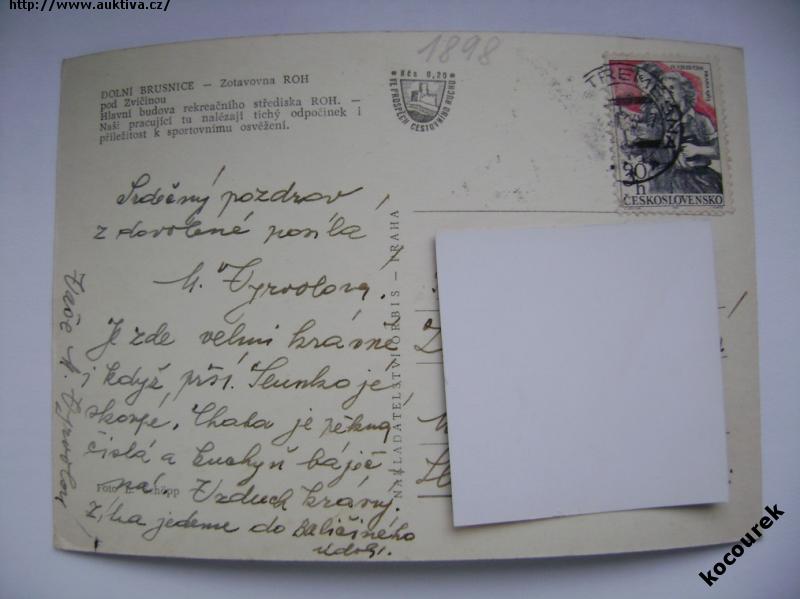 http://www.auktiva.cz/
1898
DOLNÍ BRUSNICE – Zotavovna ROH
pod Zvičinou
Hlavní budova rekreačního střediska ROH. –
Naši pracující tu nalézají tichý odpočinek i
příležitost k sportovnímu osvěžení.
Kčs 0,20
VE PROSPĚCH CESTOVNÍHO RUCHU
30 h
ČESKOSLOVENSKO
Srdečný pozdrav
z dovolené posílá
M. Vyrvolová!
Je zde velmi krásně
i když prší. Slunko je
skoupé. Chata je pěkná
čistá a kuchyň báječ
ná. Vzduch krásný.
jedeme do Babiččiného
údolí.
Vaše M.
Foto E. Schöpp
NAKLADATELSTVÍ ORBIS – PRAHA
kocourek